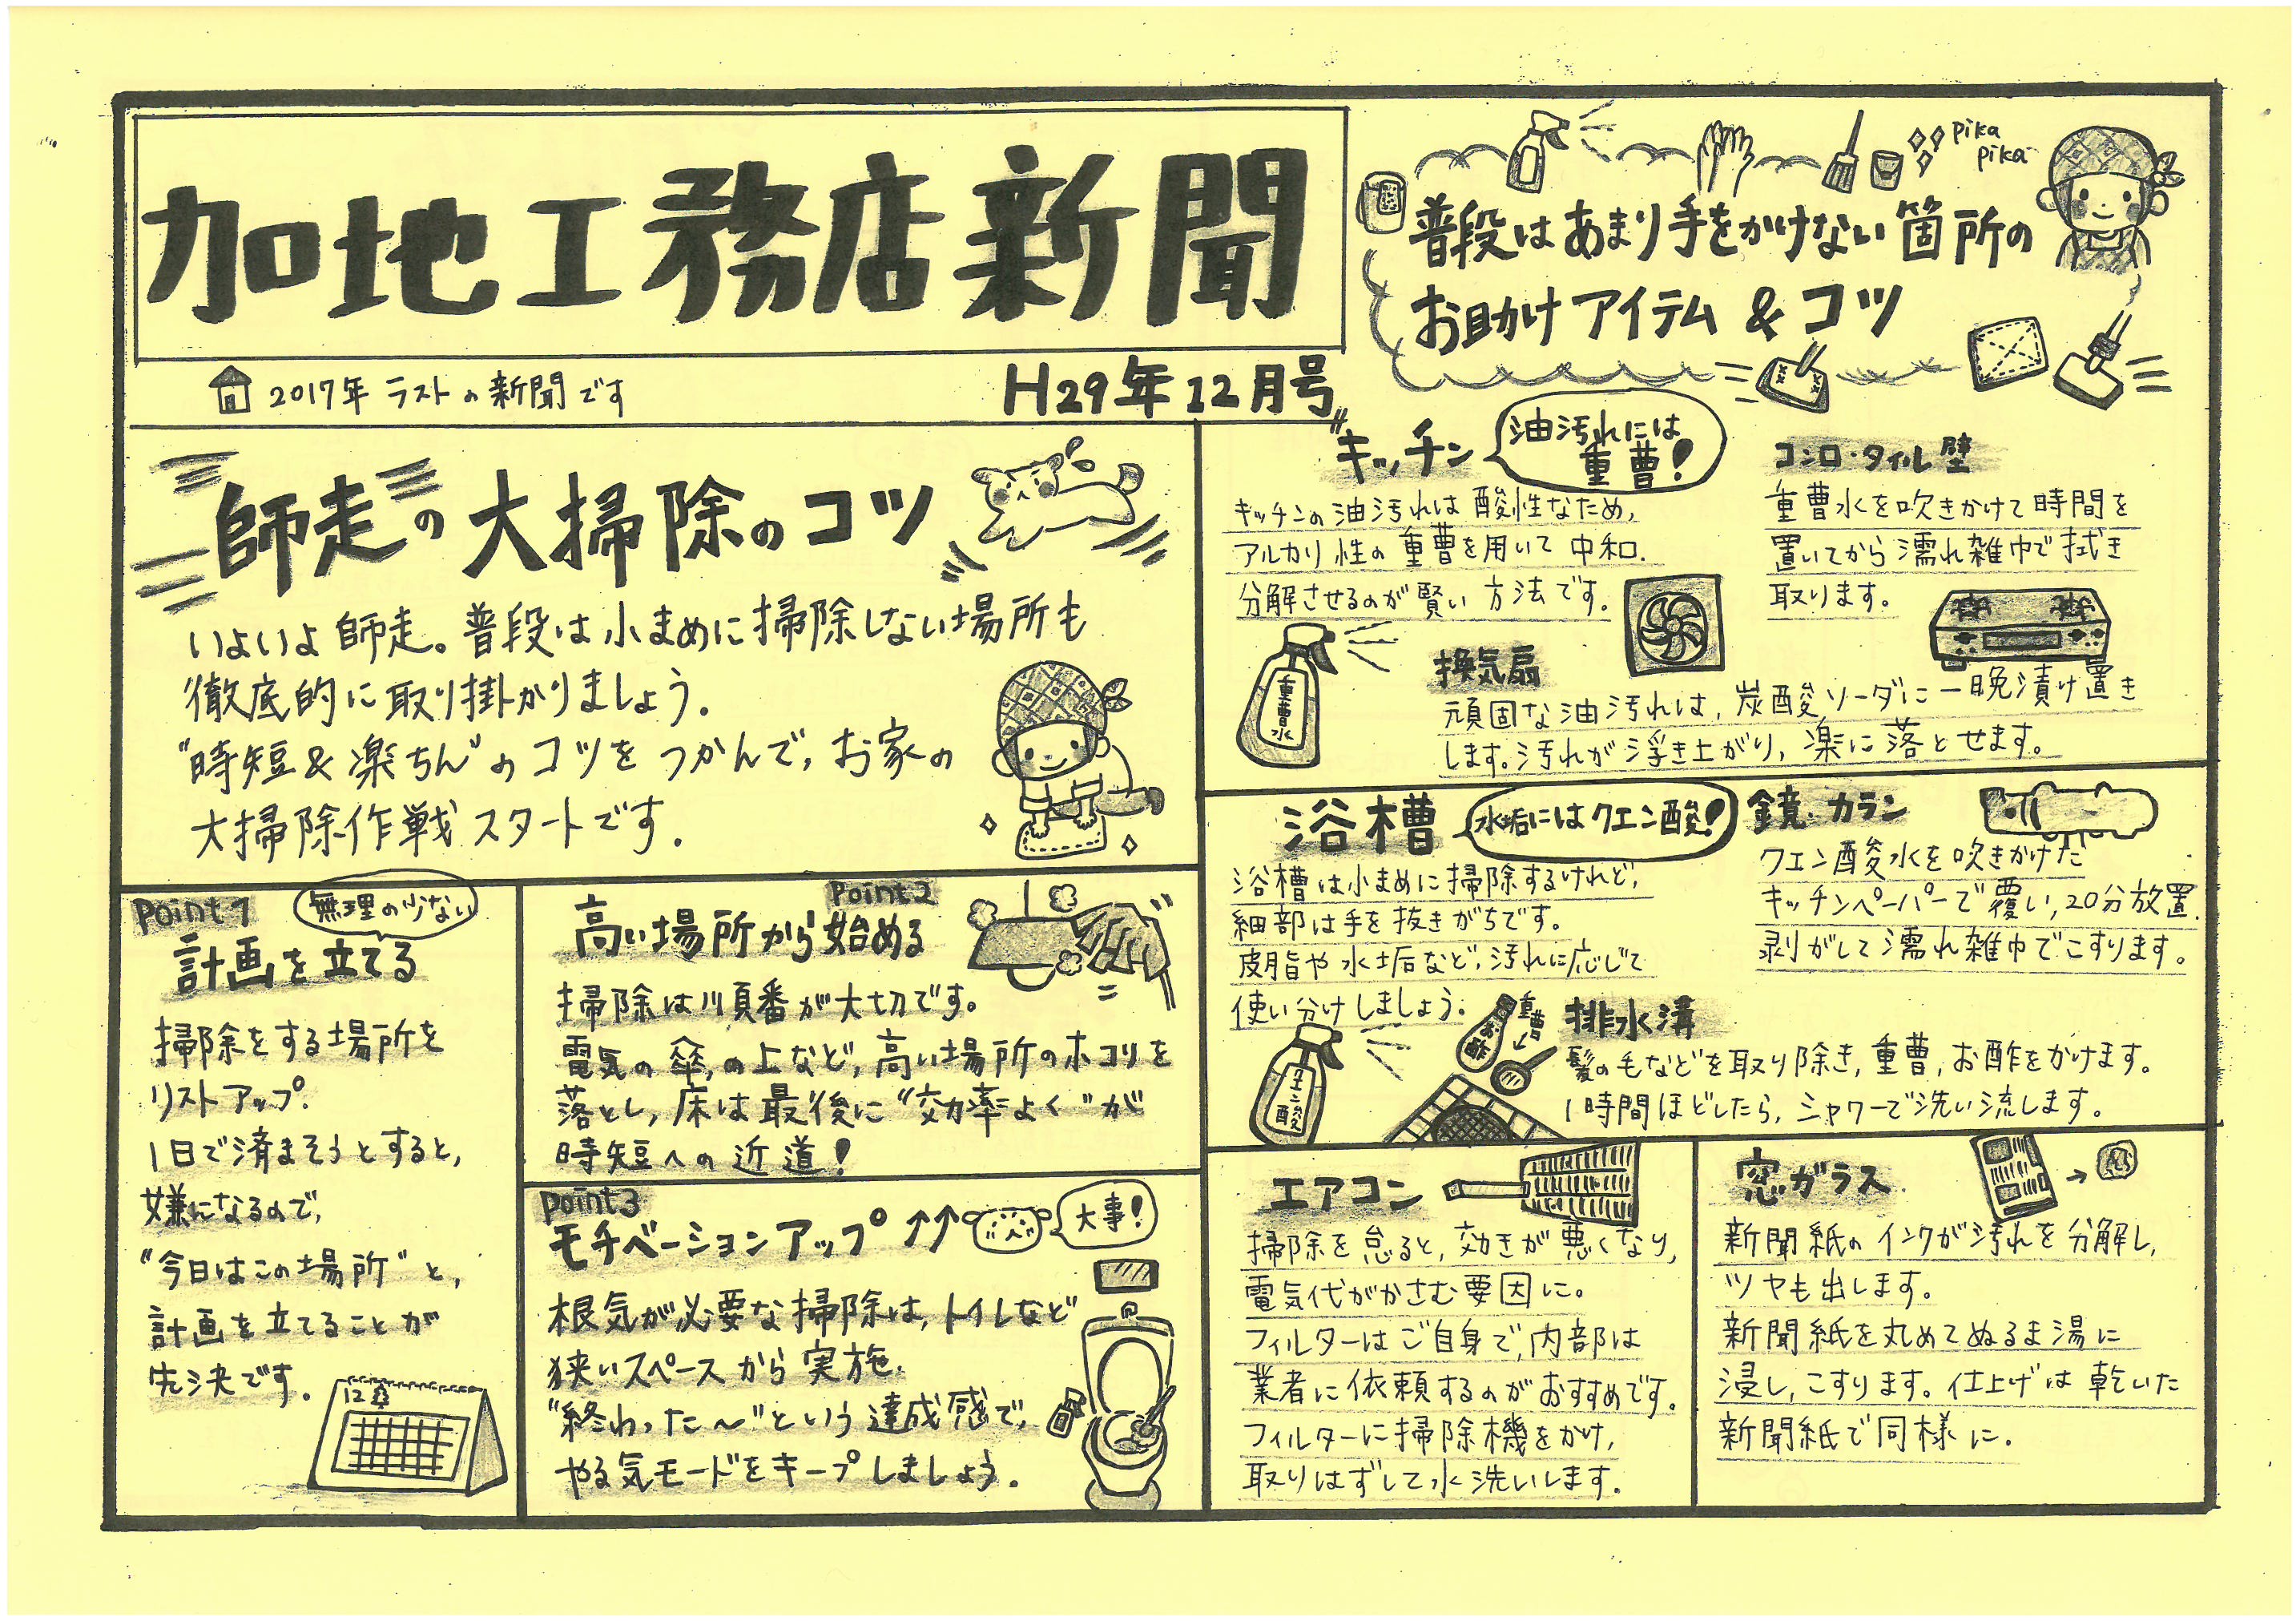 加地工務店新聞
2017年 ラストの新聞です
H29年12月号
師走の大掃除のコツ
いよいよ師走。普段は小まめに掃除しない場所も
徹底的に取り掛かりましょう.
"時短&楽ちん"のコツをつかんで,お家の
大掃除作戦スタートです.
Point1
無理の少ない
計画を立てる
掃除をする場所を
リストアップ.
1日で済まそうとすると,
嫌になるので,
"今日はこの場所"と,
計画を立てることが
先決です.
12月
Point2
高い場所から始める
掃除は順番が大切です。
電気の傘の上など,高い場所のホコリを
落とし,床は最後に"効率よく"が
時短への近道!
Point3
モチベーションアップ↑↑
大事!
根気が必要な掃除は,トイレなど
狭いスペースから実施.
"終わった〜"という達成感で,
やる気モードをキープしましょう.
pika
pika
普段はあまり手をかけない箇所の
お助けアイテム & コツ
キッチン
油汚れには
重曹!
キッチンの油汚れは酸性なため,
アルカリ性の重曹を用いて中和.
分解させるのが賢い方法です.
重曹水
コンロ・タイル壁
重曹水を吹きかけて時間を
置いてから濡れ雑巾で拭き
取ります.
換気扇
頑固な油汚れは,炭酸ソーダに一晩漬け置き
します.汚れが浮き上がり,楽に落とせます.
浴槽
水垢にはクエン酸!
浴槽は小まめに掃除するけれど,
細部は手を抜きがちです.
皮脂や水垢など,汚れに応じて
使い分けしましょう.
クエン酸
鏡.カラン
クエン酸水を吹きかけた
キッチンペーパーで覆い,20分放置.
剥がして濡れ雑巾でこすります.
お酢
重曹
排水溝
髪の毛などを取り除き,重曹,お酢をかけます.
1時間ほどしたら,シャワーで洗い流します.
エアコン
掃除を怠ると,効きが悪くなり,
電気代がかさむ要因に.
フィルターはご自身で,内部は
業者に依頼するのがおすすめです.
フィルターに掃除機をかけ,
取りはずして水洗いします.
窓ガラス
新聞紙のインクが汚れを分解し,
ツヤも出します.
新聞紙を丸めてぬるま湯に
浸し,こすります.仕上げは乾いた
新聞紙で同様に.